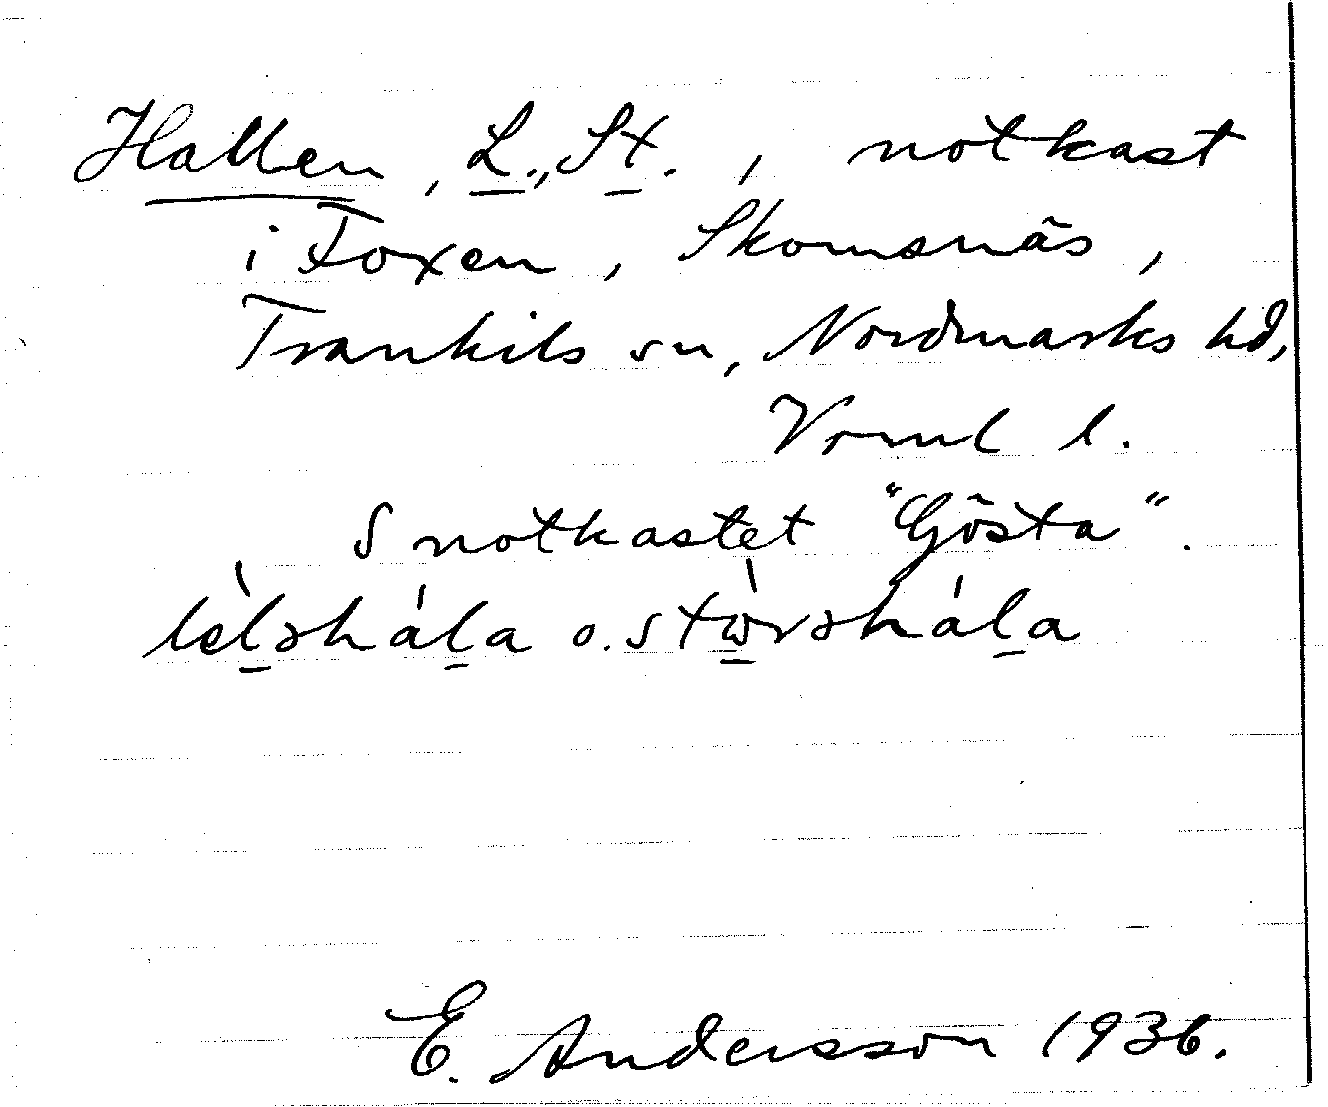 Hallen, L., St., notkast
i Foxen, Skomsnäs,
Trankils sn, Nordmarks hd,
Vrml l.
S notkastet "Gösta".
o.
E. Andersson 1936.